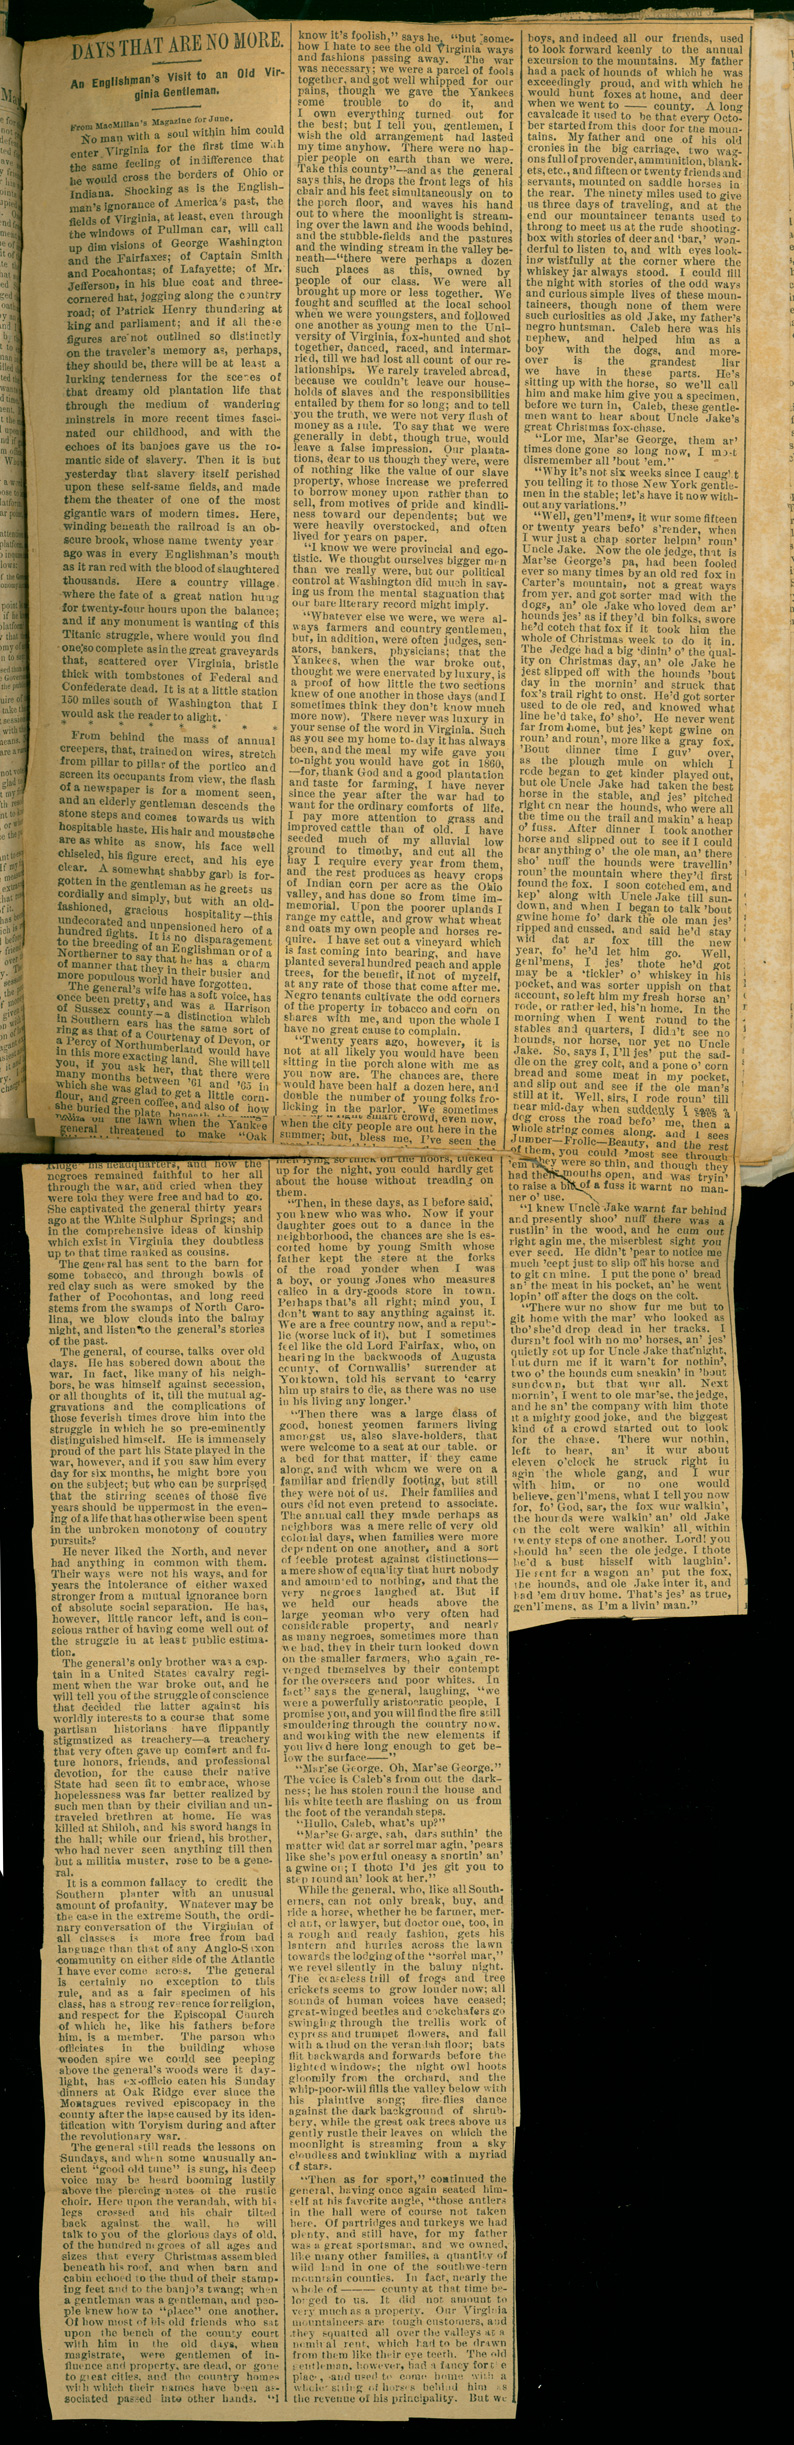 DAYS THAT ARE NO MORE.
An Englishman's Visit to an Old Vir-
ginia Gentleman.
From MacMillan's Magazine for June.
No man with a soul within him could
enter Virginia for the first time with
the same feeling of indifference that
he would cross the borders of Ohio or
Indiana. Shocking as is the English-
man's ignorance of America's past, the
fields of Virginia, at least, even through
the windows of Pullman car, will call
up dim visions of George Washington
and the Fairfaxes; of Captain Smith
and Pocahontas; of Lafayette; of Mr.
Jefferson, in his blue coat and three-
cornered hat, jogging along the country
road; of Patrick Henry thundering at
king and parliament; and if all these
figures are not outlined so distinctly
on the traveler's memory as, perhaps,
they should be, there will be at least a
lurking tenderness for the scenes of
that dreamy old plantation life that
through the medium of wandering
minstrels in more recent times fasci-
nated our childhood, and with the
echoes of its banjoes gave us the ro-
mantic side of slavery. Then it is but
yesterday that slavery itself perished
upon these self-same fields, and made
them the theater of one of the most
gigantic wars of modern times. Here,
winding beneath the railroad is an ob-
scure brook, whose name twenty year
ago was in every Englishman's mouth
as it ran red with the blood of slaughtered
thousands. Here a country village
where the fate of a great nation hung
for twenty-four hours upon the balance;
and if any monument is wanting of this
Titanic struggle, where would you find
one so complete as in the great graveyards
that, scattered over Virginia, bristle
thick with tombstones of Federal and
Confederate dead. It is at a little station
150 miles south of Washington that I
would ask the reader to alight.
* * * * *
From behind the mass of annual
creepers, that, trained on wires, stretch
from pillar to pillar of the portico and
screen its occupants from view, the flash
of a newspaper is for a moment seen,
and an elderly gentleman descends the
stone steps and comes towards us with
hospitable haste. His hair and moustache
are as white as snow, his face well
chiseled, his figure erect, and his eye
clear. A somewhat shabby garb is for-
gotten in the gentleman as he greets us
cordially and simply, but with an old-
fashioned, gracious hospitality—this
undecorated and unpensioned hero of a
hundred fights. It is no disparagement
to the breeding of an Englishman or of a
Northerner to say that he has a charm
of manner that they in their busier and
more populous world have forgotten.
The general's wife has a soft voice, has
once been pretty, and was a Harrison
of Sussex county—a distinction which
in Southern ears has the same sort of
ring as that of a Courtenay of Devon, or
a Percy of Northumberland would have
in this more exacting land. She will tell
you, if you ask her, that there were
many months between '61 and '65 in
which she was glad to get a little corn-
flour, and green coffee, and also of how
she buried the plate beneath
on the lawn when the Yankee
general threatened to make "Oak
Ridge" his headquarters, and how the
negroes remained faithful to her all
through the war, and cried when they
were told they were free and had to go.
She captivated the general thirty years
ago at the White Sulphur Springs; and
in the comprehensive ideas of kinship
which exist in Virginia they doubtless
up to that time ranked as cousins.
The general has sent to the barn for
some tobacco, and through bowls of
red clay such as were smoked by the
father of Pocohontas, and long reed
stems from the swamps of North Caro-
lina, we blow clouds into the balmy
night, and listen to the general's stories
of the past.
The general, of course, talks over old
days. He has sobered down about the
war. In fact, like many of his neigh-
bors, he was himself against secession,
or all thoughts of it, till the mutual ag-
gravations and the complications of
those feverish times drove him into the
struggle in which he so pre-eminently
distinguished himself. He is immensely
proud of the part his State played in the
war, however, and if you saw him every
day for six months, he might bore you
on the subject; but who can be surprised
that the stirring scenes of those five
years should be uppermost in the even-
ing of a life that has otherwise been spent
in the unbroken monotony of country
pursuits?
He never liked the North, and never
had anything in common with them.
Their ways were not his ways, and for
years the intolerance of either waxed
stronger from a mutual ignorance born
of absolute social separation. He has,
however, little rancor left, and is con-
scious rather of having come well out of
the struggle in at least public estima-
tion.
The general's only brother was a cap-
tain in a United States cavalry regi-
ment when the war broke out, and he
will tell you of the struggle of conscience
that decided the latter against his
worldly interests to a course that some
partisan historians have flippantly
stigmatized as treachery—a treachery
that very often gave up comfort and fu-
ture honors, friends, and professional
devotion, for the cause their native
State had seen fit to embrace, whose
hopelessness was far better realized by
such men than by their civilian and un-
traveled brethren at home. He was
killed at Shiloh, and his sword hangs in
the hall; while our friend, his brother,
who had never seen anything till then
but a militia muster, rose to be a gene-
ral.
It is a common fallacy to credit the
Southern planter with an unusual
amount of profanity. Whatever may be
the case in the extreme South, the ordi-
nary conversation of the Virginian of
all classes is more free from bad
language than that of any Anglo-Saxon
community on either side of the Atlantic
I have ever come across. The general
is certainly no exception to this
rule, and as a fair specimen of his
class, has a strong reverence for religion,
and respect for the Episcopal Church
of which he, like his fathers before
him, is a member. The parson who
officiates in the building whose
wooden spire we could see peeping
above the general's woods were it day-
light, has ex-officio eaten his Sunday
dinners at Oak Ridge ever since the
Montagues revived episcopacy in the
county after the lapse caused by its iden-
tification with Toryism during and after
the revolutionary war.
The general still reads the lessons on
Sundays, and when some unusually an-
cient "good old tune" is sung, his deep
voice may be heard booming lustily
above the piercing notes of the rustic
choir. Here upon the verandah, with his
legs crossed and his chair tilted
back against the wall, he will
talk to you of the glorious days of old,
of the hundred negroes of all ages and
sizes that every Christmas assembled
beneath his roof, and when barn and
cabin echoed to the thud of their stamp-
ing feet and to the banjo's twang; when
a gentleman was a gentleman, and peo-
ple knew how to "place" one another.
Of how most of his old friends who sat
upon the bench of the county court
with him in the old days, when
magistrate, were gentlemen of in-
fluence and property, are dead, or gone
to great cities, and the country homes
with which their names have been as-
sociated passed into other hands. "I
know it's foolish," says he, "but some-
how I hate to see the old Virginia ways
and fashions passing away. The war
was necessary; we were a parcel of fools
together, and got well whipped for our
pains, though we gave the Yankees
some trouble to do it, and
I own everything turned out for
the best; but I tell you, gentlemen, I
wish the old arrangement had lasted
my time anyhow. There were no hap-
pier people on earth than we were.
Take this county"—and as the general
says this, he drops the front legs of his
chair and his feet simultaneously on to
the porch floor, and waves his hand
out to where the moonlight is stream-
ing over the lawn and the woods behind,
and the stubble-fields and the pastures
and the winding stream in the valley be-
neath—"there were perhaps a dozen
such places as this, owned by
people of our class. We were all
brought up more or less together. We
fought and scuffled at the local school
when we were youngsters, and followed
one another as young men to the Uni-
versity of Virginia, fox-hunted and shot
together, danced, raced, and intermar-
ried, till we had lost all count of our re-
lationships. We rarely traveled abroad,
because we couldn't leave our house-
holds of slaves and the responsibilities
entailed by them for so long; and to tell
you the truth, we were not very flush of
money as a rule. To say that we were
generally in debt, though true, would
leave a false impression. Our planta-
tions, dear to us though they were, were
of nothing like the value of our slave
property, whose increase we preferred
to borrow money upon rather than to
sell, from motives of pride and kindli-
ness toward our dependents; but we
were heavily overstocked, and often
lived for years on paper.
"I know we were provincial and ego-
tistic. We thought ourselves bigger men
than we really were, but our political
control at Washington did much in sav-
ing us from the mental stagnation that
our bare literary record might imply.
"Whatever else we were, we were al-
ways farmers and country gentlemen,
but, in addition, were often judges, sen-
ators, bankers, physicians; that the
Yankees, when the war broke out,
thought we were enervated by luxury, is
a proof of how little the two sections
knew of one another in those days (and I
sometimes think they don't know much
more now). There never was luxury in
your sense of the word in Virginia. Such
as you see my home to-day it has always
been, and the meal my wife gave you
to-night you would have got in 1860,
—for, thank God and a good plantation
and taste for farming, I have never
since the year after the war had to
want for the ordinary comforts of life.
I pay more attention to grass and
improved cattle than of old. I have
seeded much of my alluvial low
ground to timothy, and cut all the
hay I require every year from them,
and the rest produces as heavy crops
of Indian corn per acre as the Ohio
valley, and has done so from time im-
memorial. Upon the poorer uplands I
range my cattle, and grow what wheat
and oats my own people and horses re-
quire. I have set out a vineyard which
is fast coming into bearing, and have
planted several hundred peach and apple
trees, for the benefit, if not of myself,
at any rate of those that come after me.
Negro tenants cultivate the odd corners
of the property in tobacco and corn on
shares with me, and upon the whole I
have no great cause to complain.
"Twenty years ago, however, it is
not at all likely you would have been
sitting in the porch alone with me as
you now are. The chances are, there
would have been half a dozen here, and
double the number of young folks fro-
licking in the parlor. We sometimes
crowd, even now,
when the city people are out here in the
summer; but, bless me, I've seen the
men lying so thick on the floors, tucked
up for the night, you could hardly get
about the house without treading on
them.
"Then, in these days, as I before said,
you knew who was who. Now if your
daughter goes out to a dance in the
neighborhood, the chances are she is es-
corted home by young Smith whose
father kept the store at the forks
of the road yonder when I was
a boy, or young Jones who measures
calico in a dry-goods store in town.
Perhaps that's all right; mind you, I
don't want to say anything against it.
We are a free country now, and a repub-
lic (worse luck of it), but I sometimes
feel like the old Lord Fairfax, who, on
hearing in the backwoods of Augusta
county, of Cornwallis' surrender at
Yorktown, told his servant to 'carry
him up stairs to die, as there was no use
in his living any longer.'
"Then there was a large class of
good, honest yeomen farmers living
amongst us, also slave-holders, that
were welcome to a seat at our table, or
a bed for that matter, if they came
along, and with whom we were on a
familiar and friendly footing, but still
they were not of us. Their families and
ours did not even pretend to associate.
The annual call they made perhaps as
neighbors was a mere relic of very old
colonial days, when families were more
dependent on one another, and a sort
of feeble protest against distinctions—
a mere show of equality that hurt nobody
and amounted to nothing, and that the
very negroes laughed at. But if
we held our heads above the
large yeoman who very often had
considerable property, and nearly
as many negroes, sometimes more than
we had, they in their turn looked down
on the smaller farmers, who again re-
venged themselves by their contempt
for the overseers and poor whites. In
fact" says the general, laughing, "we
were a powerfully aristocratic people, I
promise you, and you will find the fire still
smouldering through the country now,
and working with the new elements if
you lived here long enough to get be-
low the surface——"
"Mar'se George. Oh, Mar'se George."
The voice is Caleb's from out the dark-
ness; he has stolen round the house and
his white teeth are flashing on us from
the foot of the verandah steps.
"Hullo, Caleb, what's up?"
"Mar'se George, sah, dars suthin' the
matter wid dat ar sorrel mar agin, 'pears
like she's powerful oneasy a snortin' an'
a gwine on; I thoto I'd jes git you to
step round an' look at her."
While the general, who, like all South-
erners, can not only break, buy, and
ride a horse, whether he be farmer, mer-
chant, or lawyer, but doctor one, too, in
a rough and ready fashion, gets his
lantern and hurries across the lawn
towards the lodging of the "sorrel mar,"
we revel silently in the balmy night.
The ceaseless trill of frogs and tree
crickets seems to grow louder now; all
sounds of human voices have ceased;
great-winged beetles and cockchafers go
swinging through the trellis work of
cypress and trumpet flowers, and fall
with a thud on the verandah floor; bats
flit backwards and forwards before the
lighted windows; the night owl hoots
gloomily from the orchard, and the
whip-poor-will fills the valley below with
his plaintive song; fire-flies dance
against the dark background of shrub-
bery, while the great oak trees above us
gently rustle their leaves on which the
moonlight is streaming from a sky
cloudless and twinkling with a myriad
of stars.
"Then as for sport," continued the
general, having once again seated him-
self at his favorite angle, "those antlers
in the hall were of course not taken
here. Of partridges and turkeys we had
plenty, and still have, for my father
was a great sportsman, and we owned,
like many other families, a quantity of
wild land in one of the southwestern
mountain counties. In fact, nearly the
whole of ——— county at that time be-
longed to us. It did not amount to
very much as a property. Our Virginia
mountaineers are tough customers, and
they squatted all over the valleys at a
nominal rent, which had to be drawn
from them like their eye teeth. The old
gentleman, however, had a fancy for the
place, and used to come home with a
whole string of horses behind him as
the revenue of his principality. But we
boys, and indeed all our friends, used
to look forward keenly to the annual
excursion to the mountains. My father
had a pack of hounds of which he was
exceedingly proud, and with which he
would hunt foxes at home, and deer
when we went to —— county. A long
cavalcade it used to be that every Octo-
ber started from this door for the moun-
tains. My father and one of his old
cronies in the big carriage, two wag-
ons full of provender, ammunition, blank-
ets, etc., and fifteen or twenty friends and
servants, mounted on saddle horses in
the rear. The ninety miles used to give
us three days of traveling, and at the
end our mountaineer tenants used to
throng to meet us at the rude shooting-
box with stories of deer and 'bar,' won-
derful to listen to, and with eyes look-
ing wistfully at the corner where the
whiskey jar always stood. I could fill
the night with stories of the odd ways
and curious simple lives of these moun-
taineers, though none of them were
such curiosities as old Jake, my father's
negro huntsman. Caleb here was his
nephew, and helped him as a
boy with the dogs, and more-
over is the grandest liar
we have in these parts. He's
sitting up with the horse, so we'll call
him and make him give you a specimen,
before we turn in, Caleb, these gentle-
men want to hear about Uncle Jake's
great Christmas fox-chase.
"Lor me, Mar'se George, them ar'
times done gone so long now, I most
disremember all 'bout 'em."
"Why it's not six weeks since I caught
you telling it to those New York gentle-
men in the stable; let's have it now with-
out any variations."
"Well, gen'l'mens, it wur some fifteen
or twenty years befo' s'render, when
I wur just a chap sorter helpin' roun'
Uncle Jake. Now the ole jedge, that is
Mar'se George's pa, had been fooled
ever so many times by an old red fox in
Carter's mountain, not a great ways
from yer, and got sorter mad with the
dogs, an' ole Jake who loved dem ar'
hounds jes' as if they'd bin folks, swore
he'd cotch that fox if it took him the
whole of Christmas week to do it in.
The Jedge had a big 'dinin' o' the qual-
ity on Christmas day, an' ole Jake he
jest slipped off with the hounds 'bout
day in the mornin' and struck that
fox's trail right to onst. He'd got sorter
used to de ole red, and knowed what
line he'd take, fo' sho'. He never went
far from home, but jes' kept gwine on
roun' and roun', more like a gray fox.
'Bout dinner time I guv' over,
as the plough mule on which I
rode began to get kinder played out,
but ole Uncle Jake had taken the best
horse in the stable, and jes' pitched
right on near the hounds, who were all
the time on the trail and makin' a heap
o' fuss. After dinner I took another
horse and slipped out to see if I could
hear anything o' the ole man, an' there
sho' nuff the hounds were travellin'
roun' the mountain where they'd first
found the fox. I soon cotched em, and
kep' along with Uncle Jake till sun-
down, and when I began to talk 'bout
gwine home fo' dark the ole man jes'
ripped and cussed, and said he'd stay
wid dat ar fox till the new
year, fo' he'd let him go. Well,
genl'mens, I jes' thote he'd got
may be a 'tickler' o' whiskey in his
pocket, and was sorter uppish on that
account, so left him my fresh horse an'
rode, or rather led, his'n home. In the
morning when I went round to the
stables and quarters, I didn't see no
hounds, nor horse, nor yet no Uncle
Jake. So, says I, I'll jes' put the sad-
dle on the grey colt, and a pone o' corn
bread and some meat in my pocket,
and slip out and see if the ole man's
still at it. Well, sirs, I rode roun' till
near mid-day when suddenly I sees a
dog cross the road befo' me, then a
whole string comes along, and I sees
Jumper—Frolic—Beauty, and the rest
of them, you could 'most see through
'em they were so thin, and though they
had their mouths open, and was tryin'
to raise a bit of a fuss it warnt no man-
ner o' use.
"I knew Uncle Jake warnt far behind
and presently shoo' nuff there was a
rustlin in the wood, and he cum out
right agin me, the miserblest sight you
ever seed. He didn't 'pear to notice me
much 'cept just to slip off his horse and
to git on mine. I put the pone o' bread
an' the meat in his pocket, an' he went
lopin' off after the dogs on the colt.
"There wur no show fur me but to
git home with the mar' who looked as
tho' she'd drop dead in her tracks. I
dursn't fool with no mo' horses, an' jes'
quietly sot up for Uncle Jake that night,
but durn me if it warn't for nothin',
two o' the hounds cum sneakin' in 'bout
sundown, but that wur all. Next
mornin', I went to ole mar'se, the jedge,
and he an' the company with him thote
it a mighty good joke, and the biggest
kind of a crowd started out to look
for the chase. There wur nothin,
left to hear, an' it wur about
eleven o'clock he struck right in
agin the whole gang, and I wur
with him, or no one would
believe, gen'l'mens, what I tell you now
for, fo' God, sar, the fox wur walkin',
the hounds were walkin' an' old Jake
on the colt were walkin' all within
twenty steps of one another. Lord! you
should ha' seen the ole jedge. I thote
he'd a bust hisself with laughin'.
He sent for a wagon an' put the fox,
the hounds, and ole Jake inter it, and
had 'em druv home. That's jes' as true,
gen'l'mens, as I'm a livin' man."